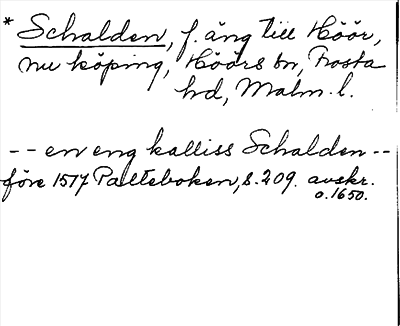 * Schalden, f. äng till Höör,
nu köping, Höörs sn, Frosta
hd, Malm. l.
-- en eng kalliss Schalden --
före 1517 Palteboken, s. 209. avskr.
o. 1650.